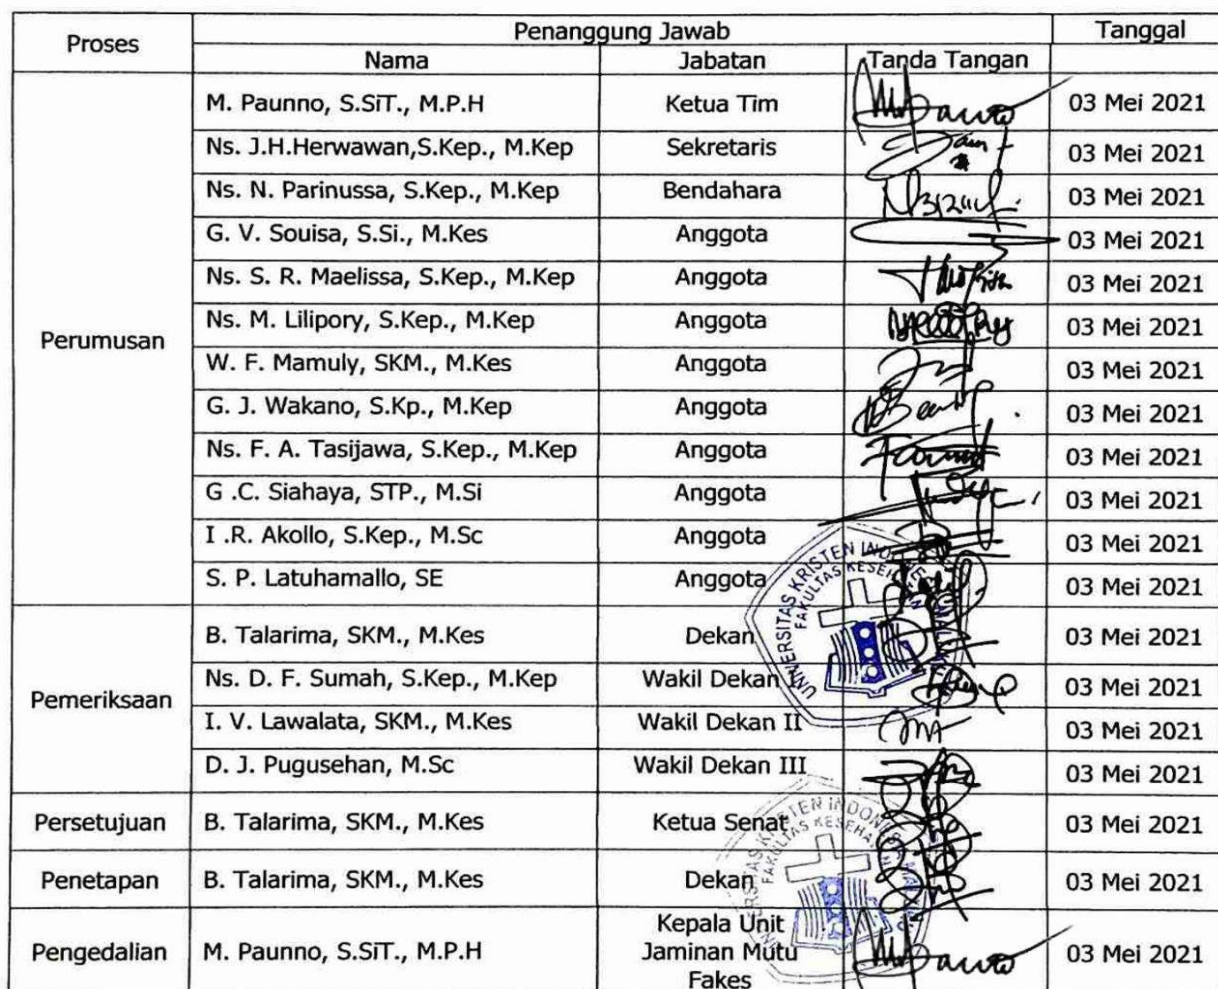 Proses Penanggung Jawab Tanggal
Nama Jabatan Tanda Tangan
Perumusan
M. Paunno, S.SiT., M.P.H Ketua Tim 03 Mei 2021
Ns. J.H.Herwawan,S.Kep., M.Kep Sekretaris 03 Mei 2021
Ns. N. Parinussa, S.Kep., M.Kep Bendahara 03 Mei 2021
G. V. Souisa, S.Si., M.Kes Anggota 03 Mei 2021
Ns. S. R. Maelissa, S.Kep., M.Kep Anggota 03 Mei 2021
Ns. M. Lilipory, S.Kep., M.Kep Anggota 03 Mei 2021
W. F. Mamuly, SKM., M.Kes Anggota 03 Mei 2021
G. J. Wakano, S.Kp., M.Kep Anggota 03 Mei 2021
Ns. F. A. Tasijawa, S.Kep., M.Kep Anggota 03 Mei 2021
G .C. Siahaya, STP., M.Si Anggota 03 Mei 2021
I .R. Akollo, S.Kep., M.Sc Anggota 03 Mei 2021
S. P. Latuhamallo, SE Anggota 03 Mei 2021
Pemeriksaan
B. Talarima, SKM., M.Kes Dekan 03 Mei 2021
Ns. D. F. Sumah, S.Kep., M.Kep Wakil Dekan 03 Mei 2021
I. V. Lawalata, SKM., M.Kes Wakil Dekan II 03 Mei 2021
D. J. Pugusehan, M.Sc Wakil Dekan III 03 Mei 2021
Persetujuan B. Talarima, SKM., M.Kes Ketua Senat 03 Mei 2021
Penetapan B. Talarima, SKM., M.Kes Dekan 03 Mei 2021
Pengedalian M. Paunno, S.SiT., M.P.H Kepala Unit
Jaminan Mutu 03 Mei 2021
Fakes
UNIVERSITAS KRISTEN
FAKULTAS